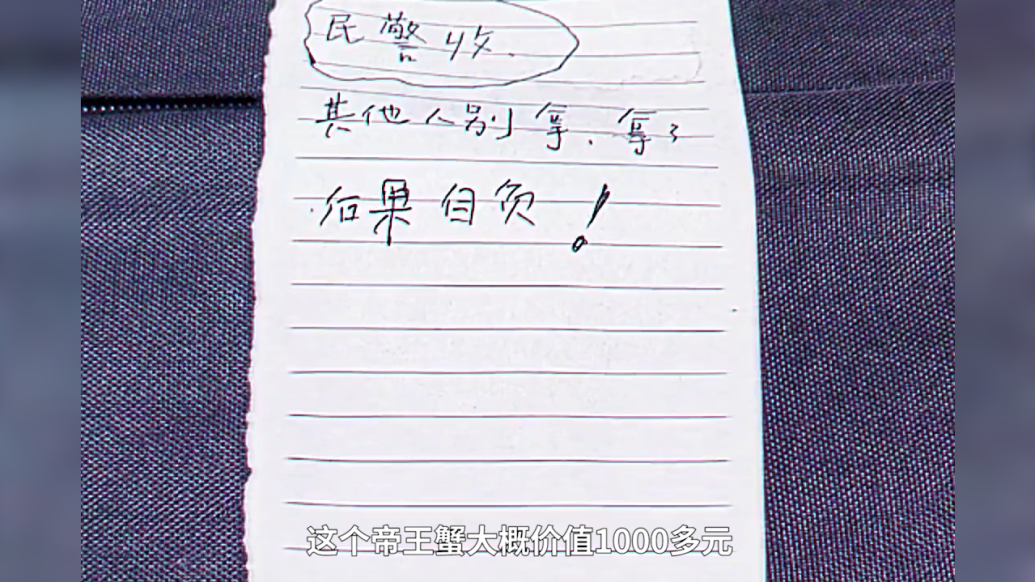 民警收.
其他人别拿、拿了
后果自负！
这个帝王蟹大概价值1000多元